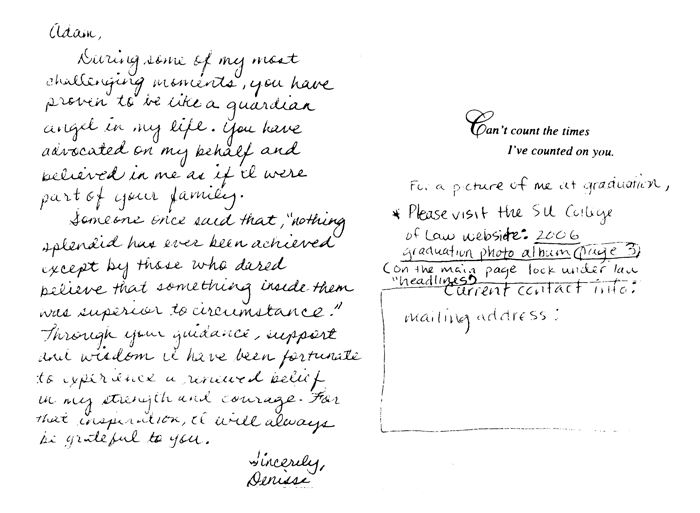 Adam,
During some of my most
challenging moments, you have
proven to be like a guardian
angel in my life. You have
advocated on my behalf and
believed in me as if I were
part of your family.
Someone once said that, "nothing
splendid has ever been achieved
except by those who dared
believe that something inside them
was superior to circumstance."
Through your guidance, support
and wisdom I have been fortunate
to experience a renewed belief
in my strength and courage. For
that inspiration, I will always
be grateful to you.
Sincerely,
Denisse
Can't count the times
I've counted on you.
For a picture of me at graduation,
* Please visit the SU College
of Law website: 2006
graduation photo album (page 3)
(on the main page look under law
"headlines")
Current contact info:
mailing address: